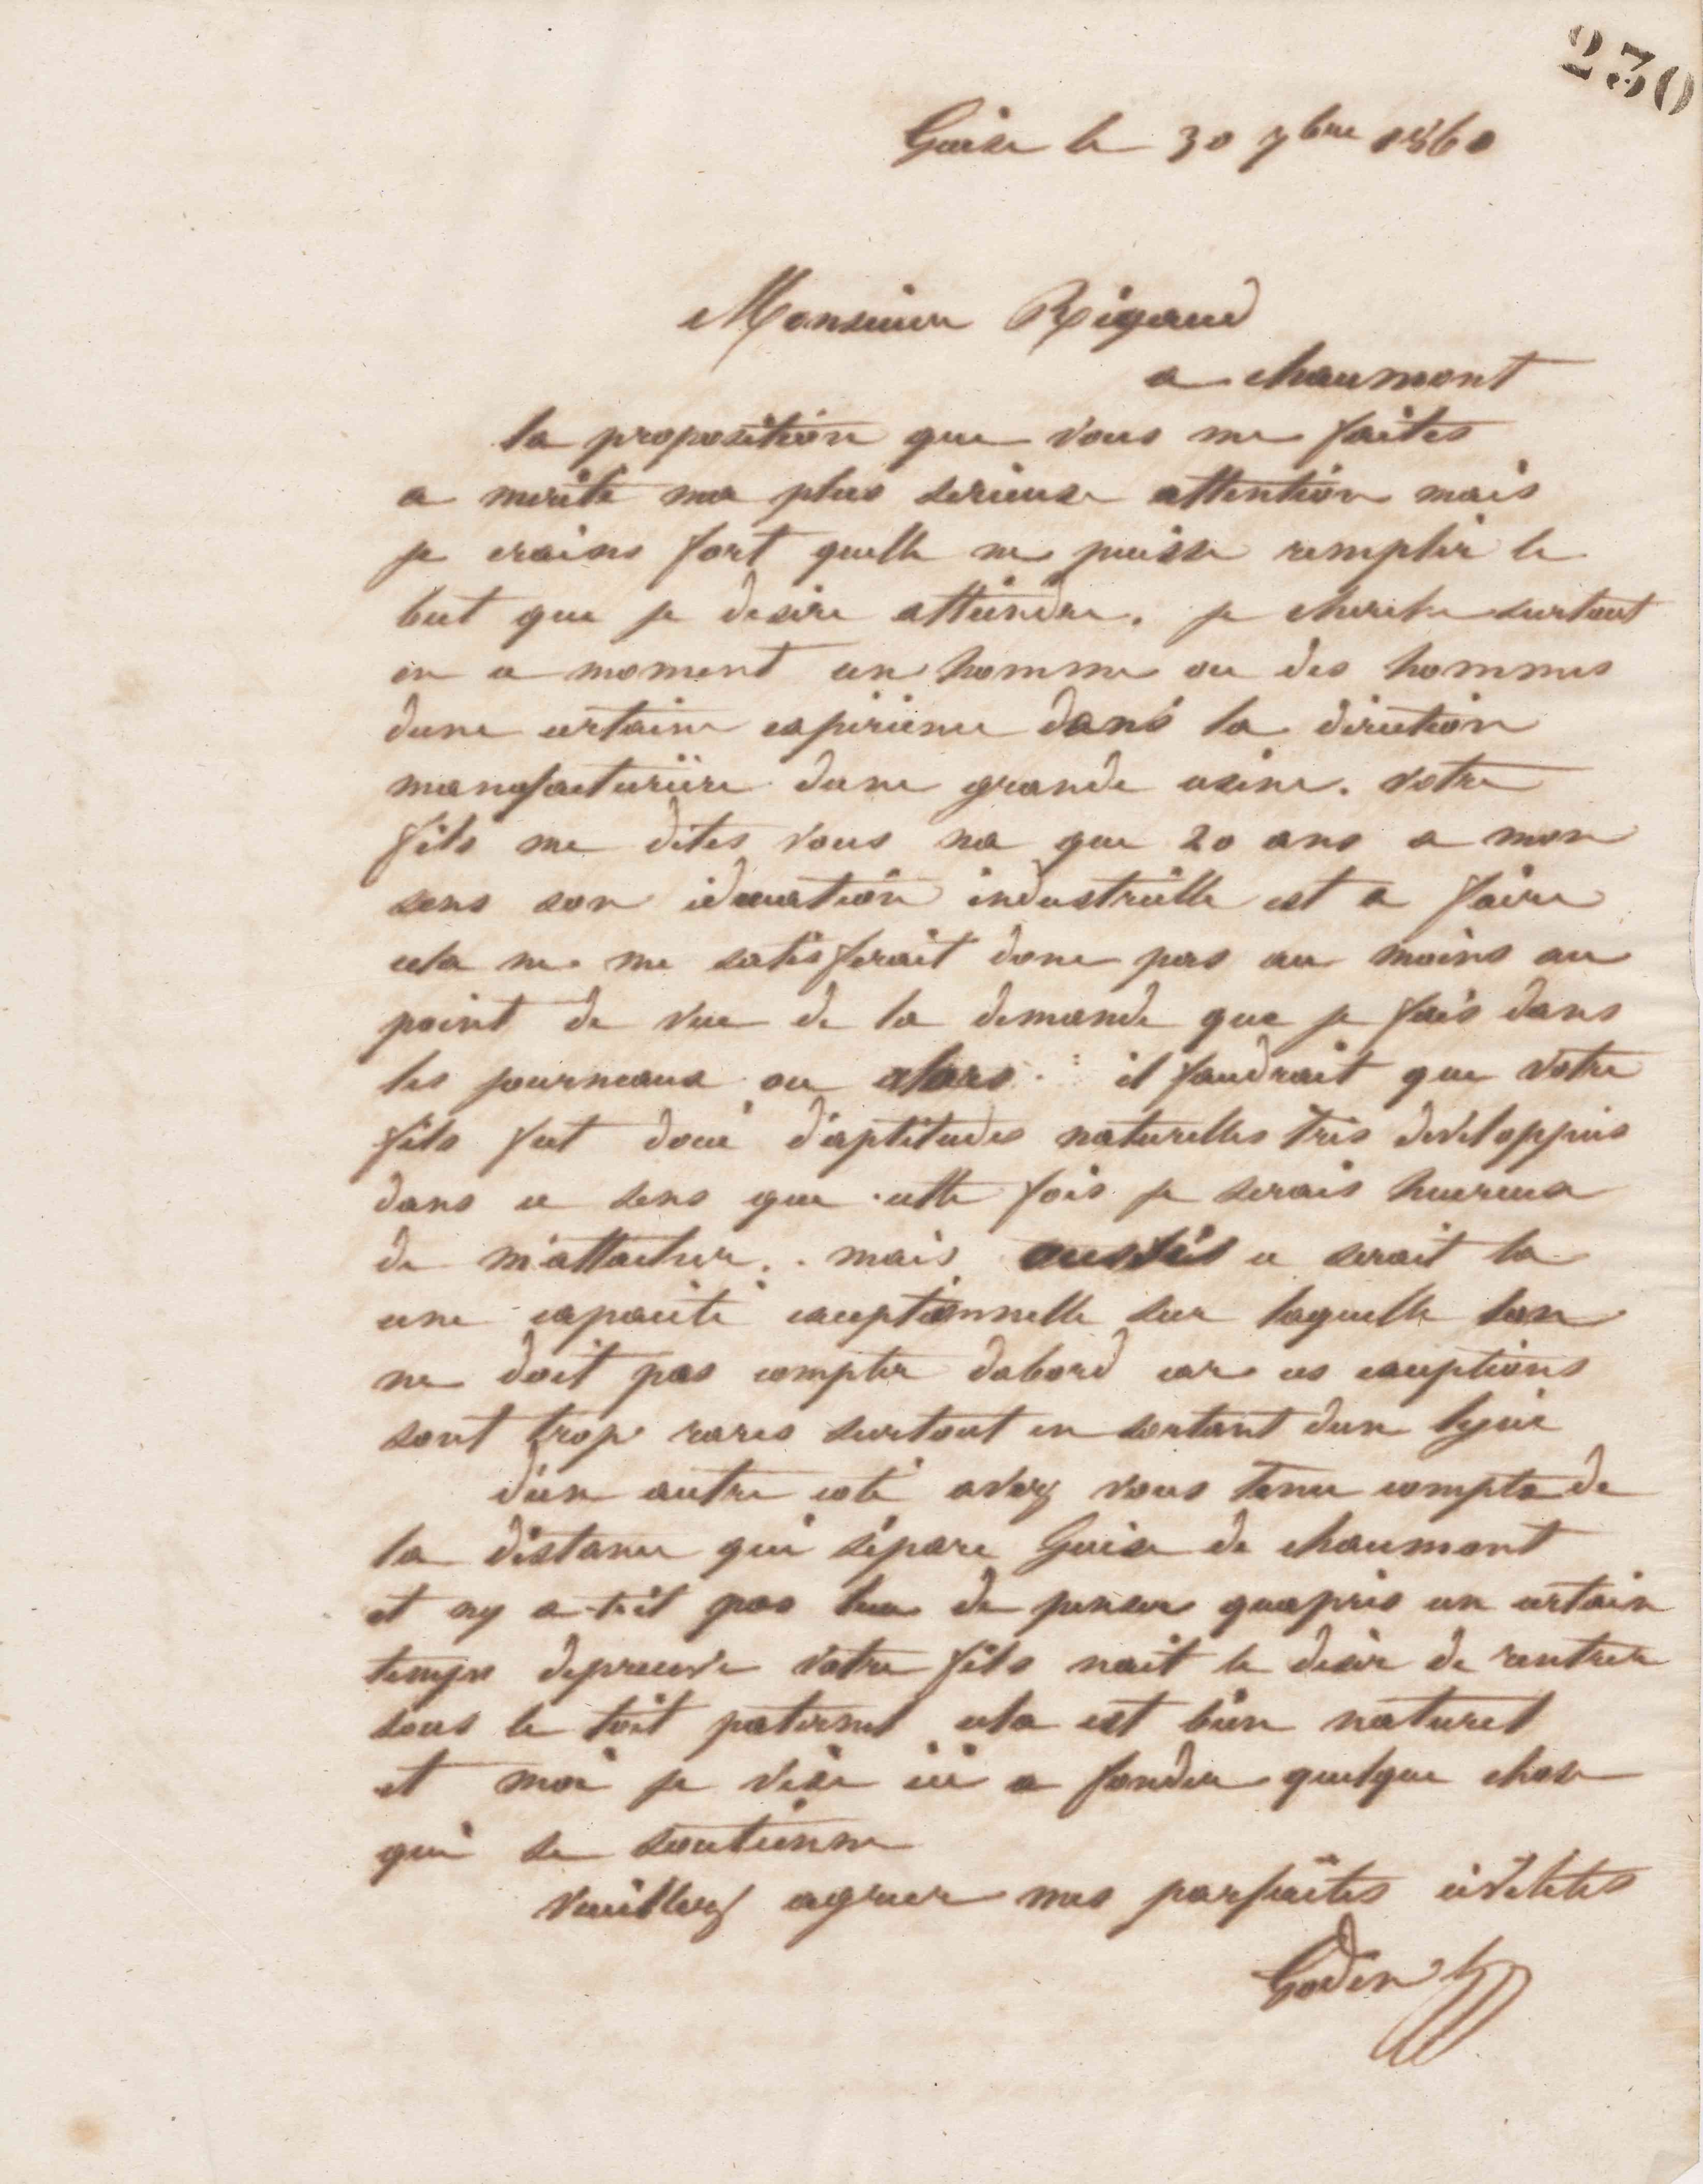 230
Guise le 30 7bre 1860
Monsieur Rigaud
a chaumont
la proposition que vous me faites
a merité ma plus serieuse attention mais
je crains fort quelle ne puisse remplir le
but que je desire atteindre. je cherche surtout
en ce moment un homme ou des hommes
dune certaine expérience dans la direction
manufacturière dune grande usine. votre
fils me dites vous na que 20 ans a mon
sens son éducation industrielle est a faire
cela ne me satisferait donc pas au moins au
point de vue de la demande que je fais dans
les journeaux ou alors il faudrait que votre
fils fut doué d'aptitudes naturelles très développées
dans ce sens que cette fois je serais heureux
de m'attacher. mais aussi ce serait la
une capacité exceptionnelle sur laquelle lon
ne doit pas compter dabord car ces exceptions
sont trop rares surtout en sortant dun lycée
d'un autre coté avez vous tenu compte de
la distance qui sépare Guise de chaumont
et ny a-t-il pas lieu de penser quaprès un certain
temps depreuve votre fils nait le désir de rentrer
sous le toit paternel cela est bien naturel
et moi je vise ici a fonder quelque chose
qui se soutienne
veuillez agreer mes parfaites civilités
Godin